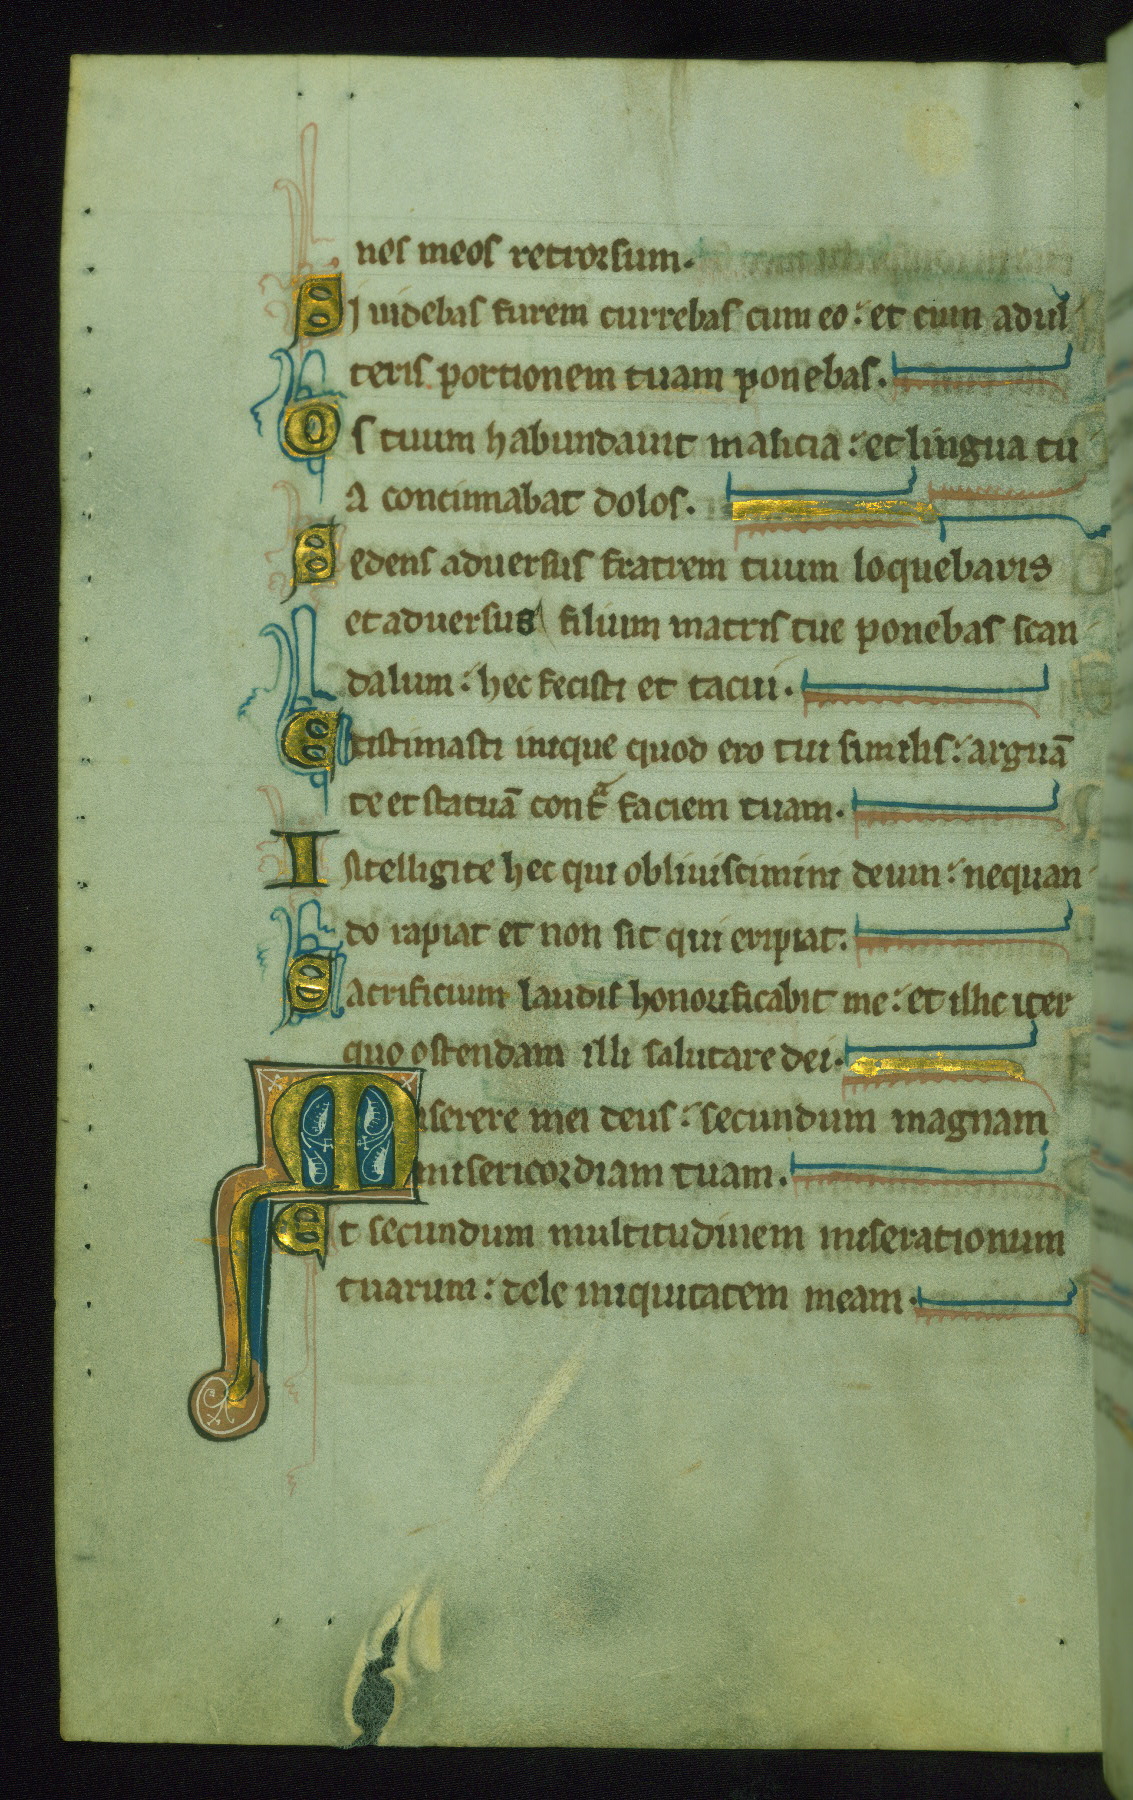 nes meos retrorsum.
Sj uidebas furem currebas cum eo: et cum adul
teris portionem tuam ponebas.
Os tuum habundauit malicia: et lingua tu
a concinnabat dolos.
Sedens aduersus fratrem tuum loquebaris
et aduersus filium matris tue ponebas scan
dalum: hec fecisti et tacui.
Extistimasti inique quod ero tui similis: arguā
te et statuā contᵃ faciem tuam.
Intelligite hec qui obliuiscimini deum: nequan
do rapiat et non sit qui eripiat.
Sacrificium laudis honorificabit me: et illic iter
quo ostendam illi salutare dei.
Miserere mei deus: secundum magnam
misericordiam tuam.
Et secundum multitudinem miserationum
tuarum: dele iniquitatem meam.